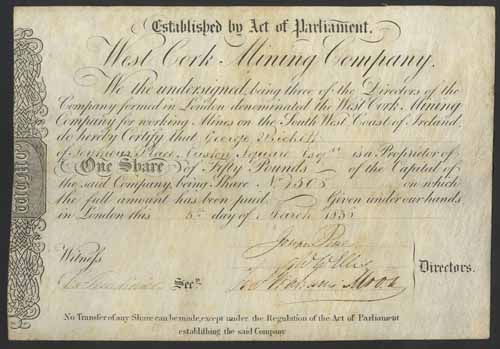 Established by Act of Parliament.
West Cork Mining Company.
We the undersigned, being three of the Directors of the
Company formed in London denominated the West Cork Mining
Company for working Mines on the South West Coast of Ireland,
do hereby Certify that George
of Seymour Place Euston Square Esqre is a Proprietor of
One Share of Fifty Pounds of the Capital of
the said Company, being Share No on which
the full amount has been paid. Given under our hands
in London this day of March
Witness
Secy.
Directors.
No Transfer of any Share can be made, except under the Regulation of the Act of Parliament
establishing the said Company